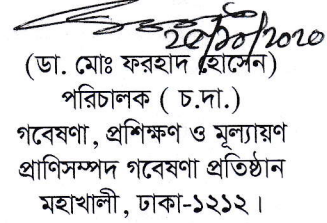 ২৫/১০/২০২০
(ডা. মোঃ ফরহাদ হোসেন)
পরিচালক ( চ.দা.)
গবেষণা, প্রশিক্ষণ ও মূল্যায়ণ
প্রাণিসম্পদ গবেষণা প্রতিষ্ঠান
মহাখালী, ঢাকা-১২১২ ।